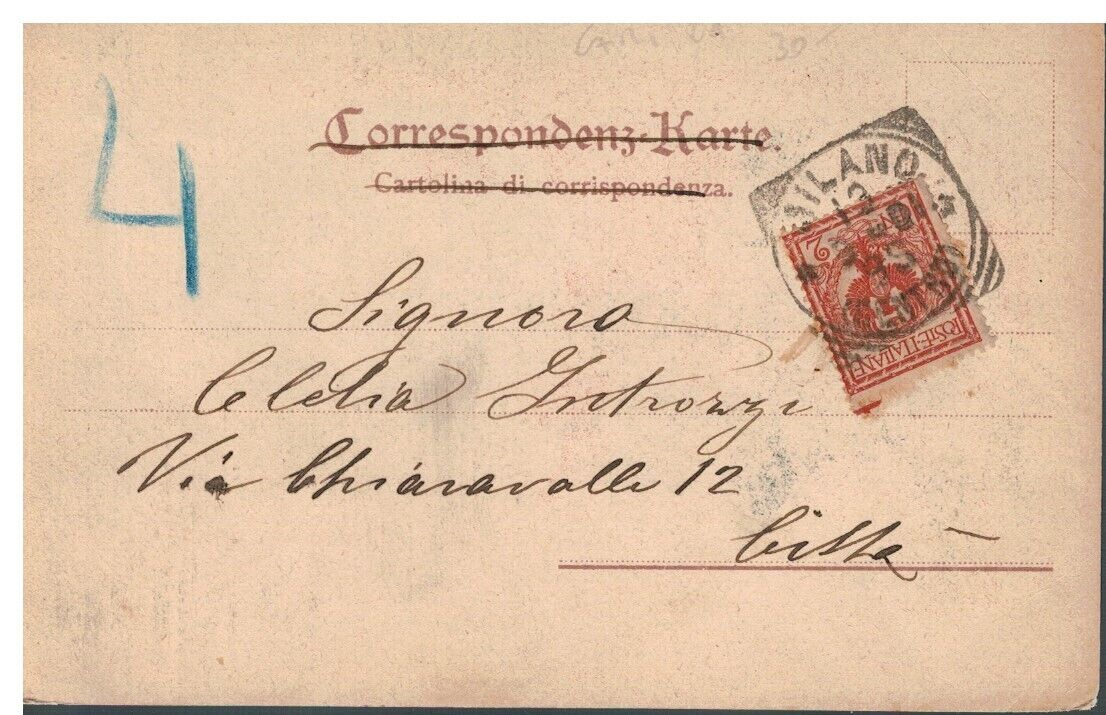 30
4
Correspondenz-Karte.
Cartolina di corrispondenza.
MILANO
12
POSTE-ITALIANE
2
Signora
Clelia Introzzi
Via Chiaravalle 12
Città